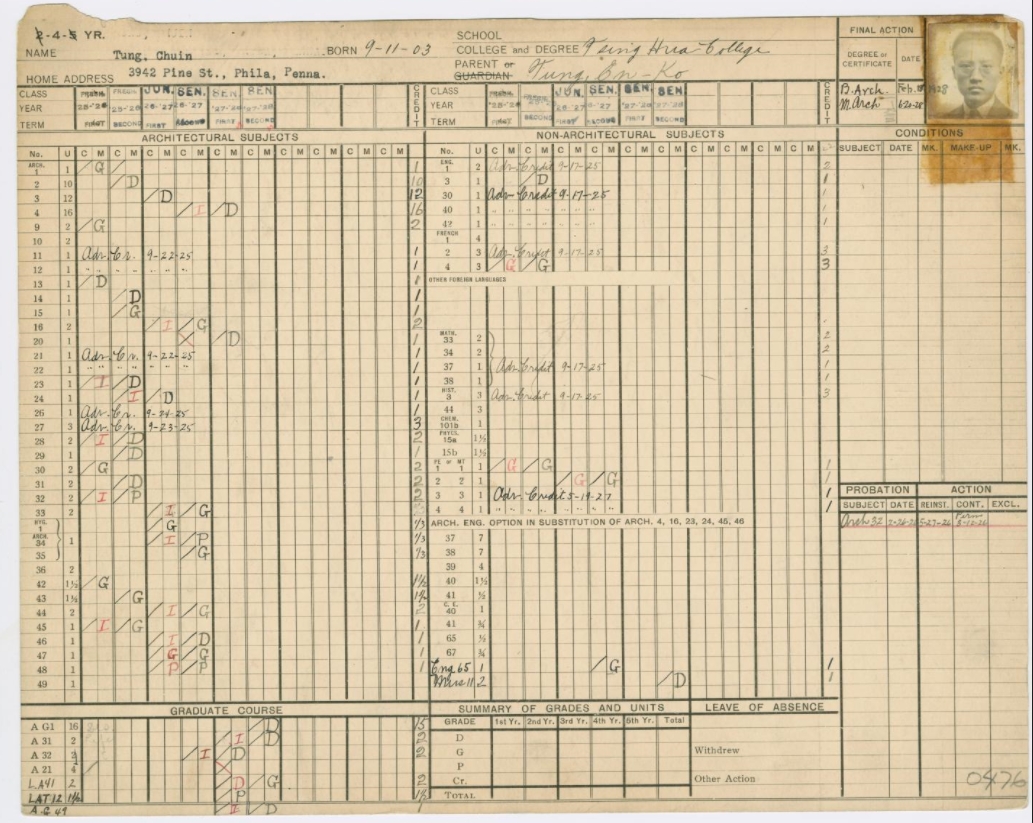 2-4-5 YR.
NAME Tung, Chuin BORN 9-11-03
HOME ADDRESS 3942 Pine St., Phila, Penna.
SCHOOL
COLLEGE and DEGREE Tsing Hua College
PARENT or GUARDIAN Tung, En-Ko
FINAL ACTION
DEGREE or CERTIFICATE DATE
B. Arch. Feb.
M. Arch 6-20-28
CLASS JUN. SEN. SEN. CREDIT
YEAR 26-'27
TERM FIRST SECOND FIRST SECOND FIRST SECOND
CLASS JUN. SEN. SEN. SEN. CREDIT
YEAR
TERM FIRST SECOND FIRST SECOND FIRST SECOND
ARCHITECTURAL SUBJECTS
No. U C M C M C M C M C M C M C M C M C M C M
ARCH. 1 1 G 1
2 10 D 10
3 12 D 12
4 16 I D 16
9 2 G 2
10 2
11 1 Adv. Cr. 9-22-25 1
12 1 " " " " 1
13 1 D
14 1 D 1
15 1 G 1
16 2 I G 2
20 1 D 1
21 1 Adv. Cr. 9-22-25 1
22 1 " " " " 1
23 1 I D 1
24 1 I D 1
26 1 Adv. Cr. 9-24-25 1
27 3 Adv. Cr. 9-23-25 3
28 2 I D 2
29 1 D 1
30 2 G 2
31 2 D 2
32 2 I P 2
33 2 I G
HYG. 1 G 1/3
ARCH. 34 1 I P 1/3
35 G 1/3
36 2
42 1½ G 1½
43 1½ G 1½
44 2 I G 2
45 1 I G 1
46 1 I D 1
47 1 G G 1
48 1 P P 1
49 1
NON-ARCHITECTURAL SUBJECTS
No. U C M C M C M C M C M C M C M C M C M C M
ENG. 1 2 Adv. Credit 9-17-25 2
3 1 D 1
30 1 Adv. Credit 9-17-25 1
40 1 " " " " " " 1
42 1 " " " " " " 1
FRENCH 1 4
2 3 Adv. Credit 9-17-25 3
4 3 G G 3
OTHER FOREIGN LANGUAGE
MATH. 33 2 2
34 2 2
37 1 Adv. Credit 9-17-25 1
38 1 1
HIST. 3 3 Adv. Credit 9-17-25 3
44 3
CHEM. 101b 1
PHYCS. 15a 1½
15b 1½
PE or MT 1 1 1 G G 1
2 2 1 G G 1
3 3 1 Adv. Credit 5-19-27 1
4 4 1 " " " " " " 1
ARCH. ENG. OPTION IN SUBSTITUTION OF ARCH. 4, 16, 23, 24, 45, 46
37 7
38 7
39 4
40 1½
41 ½
C. E. 40 1
41 ¾
65 ½
67 ¾
Eng 65 1 G 1
11 2 D 1
CONDITIONS
SUBJECT DATE MK. MAKE-UP MK.
PROBATION ACTION
SUBJECT DATE REINST. CONT. EXCL.
Arch 32
GRADUATE COURSE
A G1 16 D 15
A 31 2 I D
A 32 I D 2
A 21 4
L.A41 2 D G 2
LAT12 1½ P 1½
A.G 49 I D 1
SUMMARY OF GRADES AND UNITS
GRADE 1st Yr. 2nd Yr. 3rd Yr. 4th Yr. 5th Yr. Total
D
G
P
Cr.
TOTAL
LEAVE OF ABSENCE
Withdrew
Other Action
0476